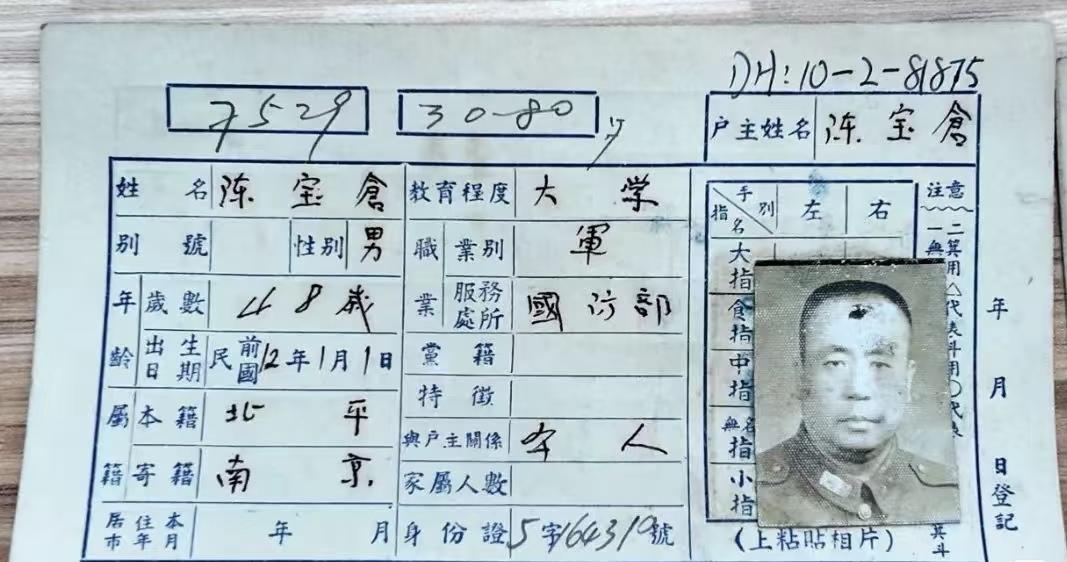 DH:10-2-81875
7529 30-80
户主姓名 陈宝倉
姓名 陈宝倉 教育程度 大学
別號 性別 男 職業 業別 軍
年齡 歲數 48歲 服務處所 國防部
出生日期 民國前12年1月1日 黨籍
特徵
屬籍 本籍 北平 與戶主關係 本人
寄籍 南京 家屬人數
居住本市年月 年 月 身份證 5字164310號
手別 指名 左 右
大指
食指
中指
無名指
小指
(上粘貼相片)
注意
一無
二箕用△代表斗用○代表
其斗
年 月 日登記